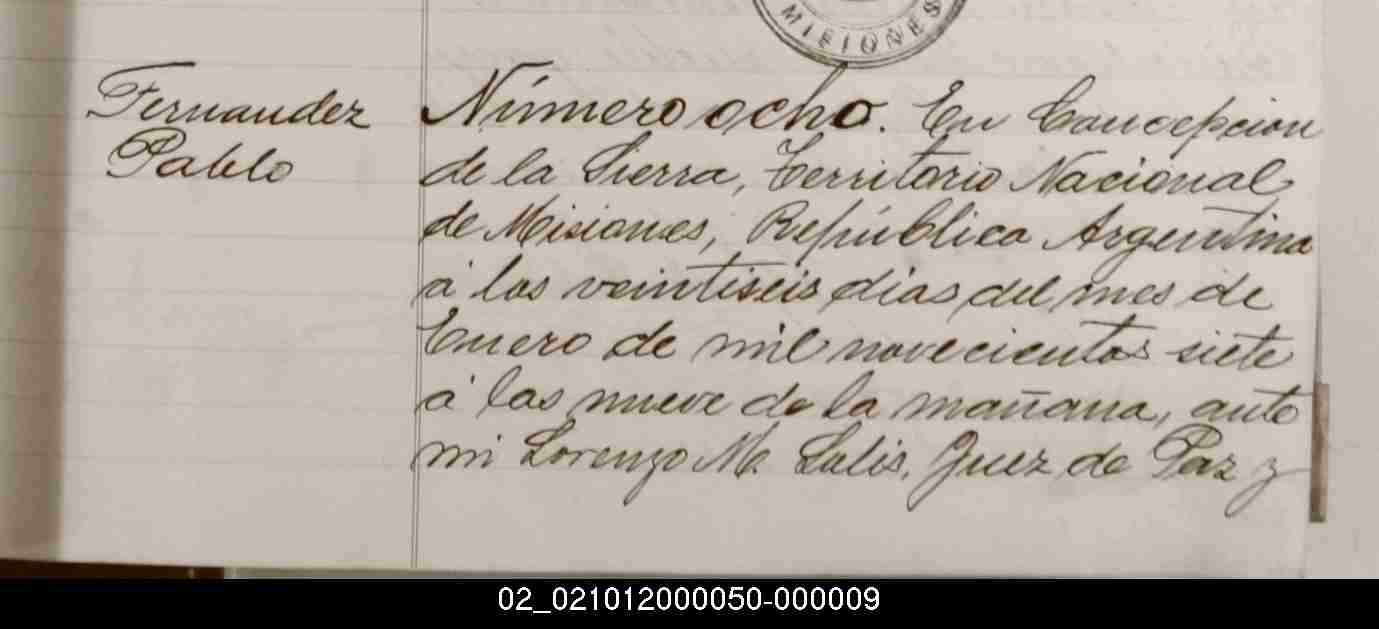 MISIONES
Fernandez
Pablo
Número ocho. En Concepcion
de la Sierra, Territorio Nacional
de Misiones, República Argentina
á los veintiseis dias del mes de
Enero de mil novecientos siete
á las nueve de la mañana, ante
mi Lorenzo M. Lalis, Juez de Paz y
02_021012000050-000009